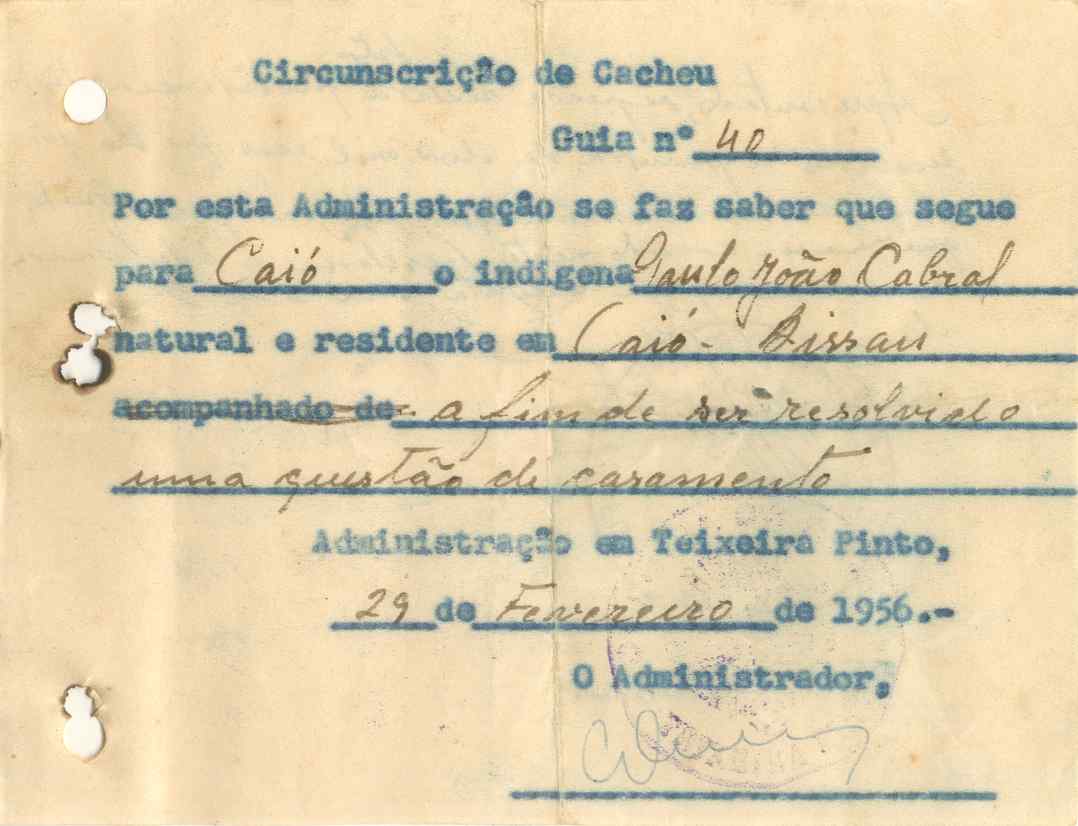 Circunscrição de Cacheu
Guia nº 40
Por esta Administração se faz saber que segue
para Caió o indigena Paulo João Cabral
natural e residente em Caió - Bissau
acompanhado de a fim de ser resolvido
uma questão de casamento
Administração em Teixeira Pinto,
29 de Fevereiro de 1956.-
O Administrador,